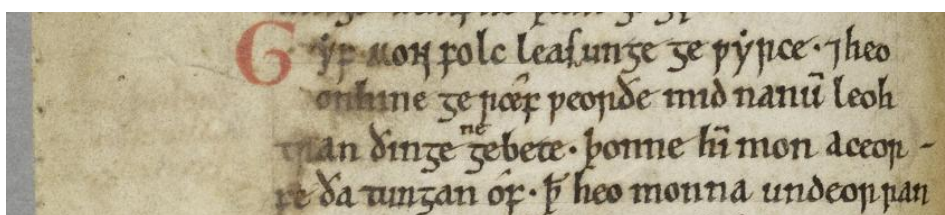 Gyf mon folc leasunge ge wyrce · ⁊ heo
onhine ge ræf weorðe mid nanū leoh
tran ðinge ne gebete · þonne hī mon aceor-
fe ða tungan óf · ꝥ heo monna undeorran